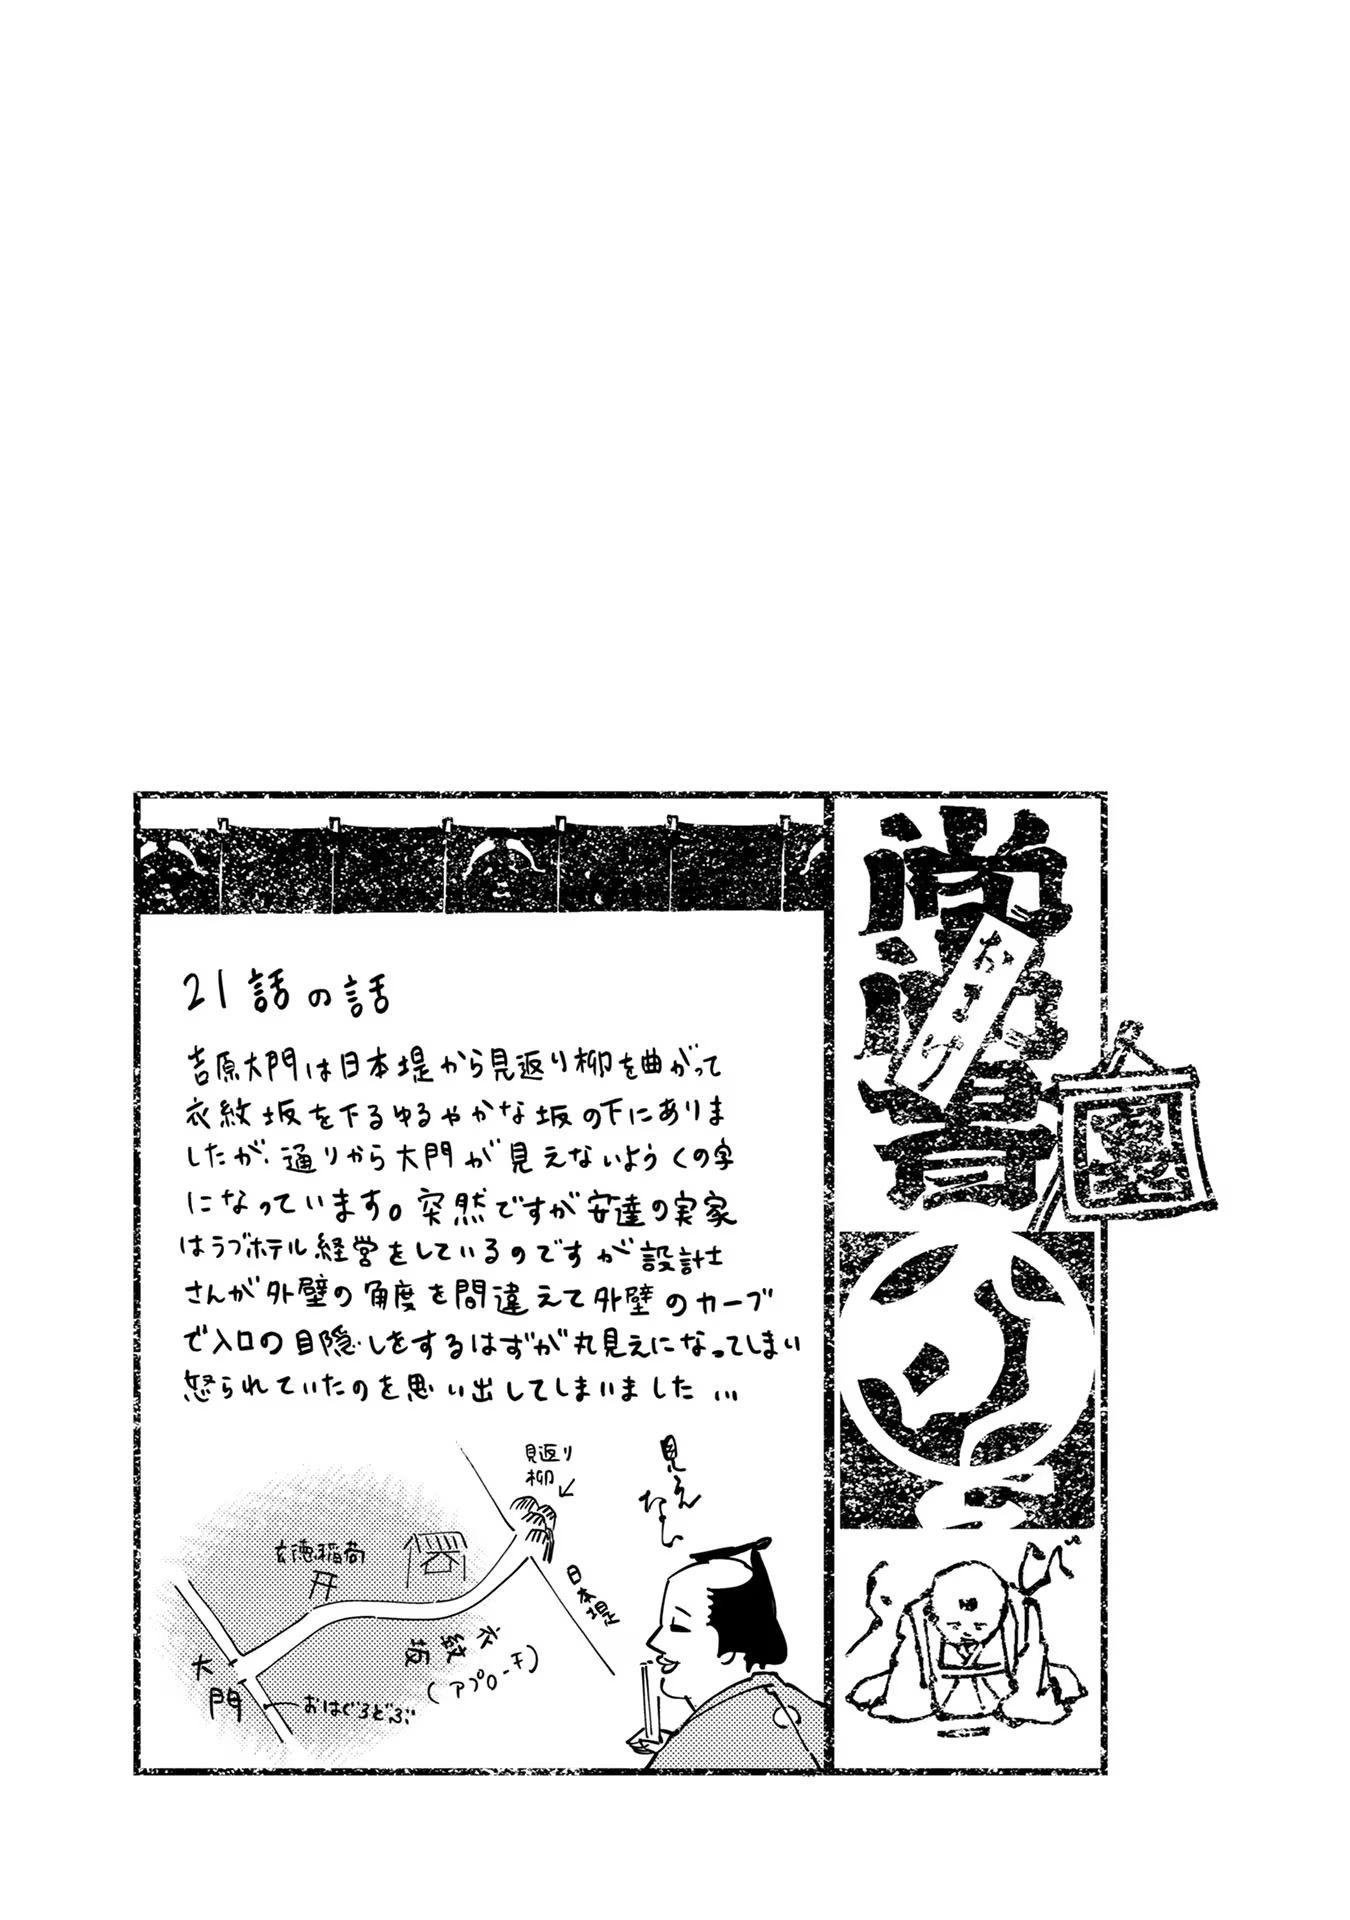 おまけ
21話の話
吉原大門は日本堤から見返り柳を曲がって
衣紋坂を下るゆるやかな坂の下にありま
したが、通りから大門が見えないようくの字
になっています。突然ですが安達の実家
はラブホテル経営をしているのですが設計士
さんが外壁の角度を間違えて外壁のカーブ
で入口の目隠しをするはずが丸見えになってしまい
怒られていたのを思い出してしまいました…
見返り
柳
日本堤
玄徳稲荷
衣紋坂
(アプローチ)
大門
おはぐろどぶ
見え
ない